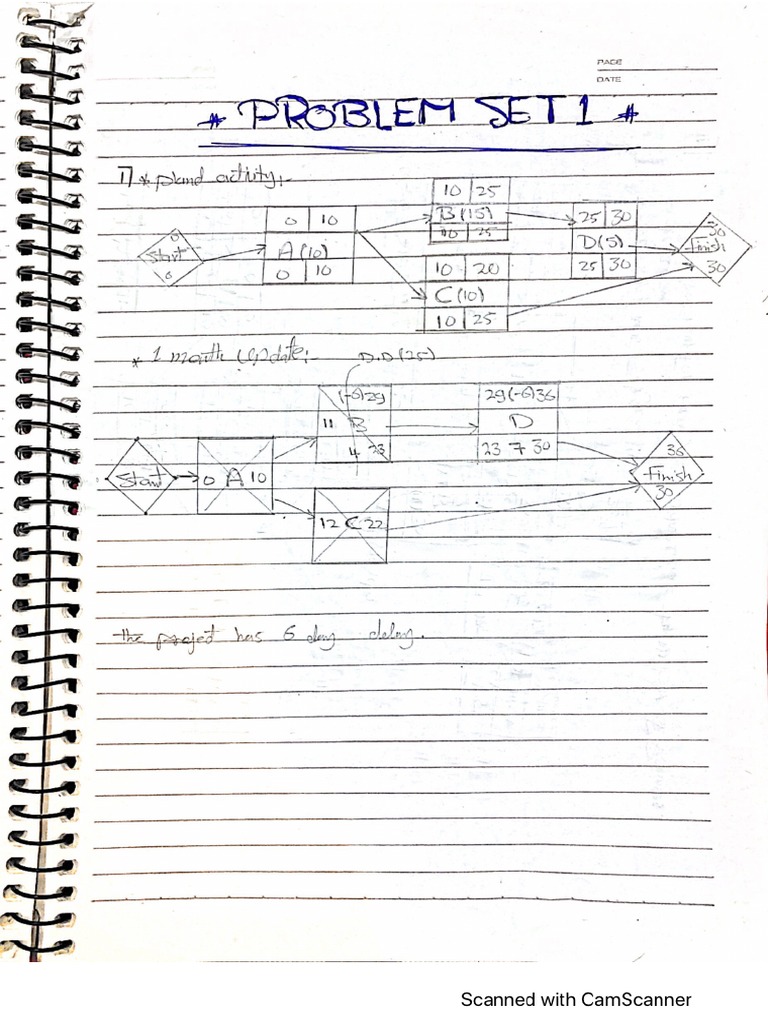 PAGE
DATE
* PROBLEM SET 1 *
1) * pland activity:-
10 25
0 10
B (15)
25 30
0
10 25
30
Start
A (10)
D(5)
Finish
0
0 10
10 20
25 30
30
C (10)
10 25
* 1 month Update:-
D.D (25)
(-6) 29
29 (-6) 36
11 B
D
4 23
23 7 30
36
Start
0 A 10
Finish
12 C 22
30
the project has 6 day delay.
Scanned with CamScanner